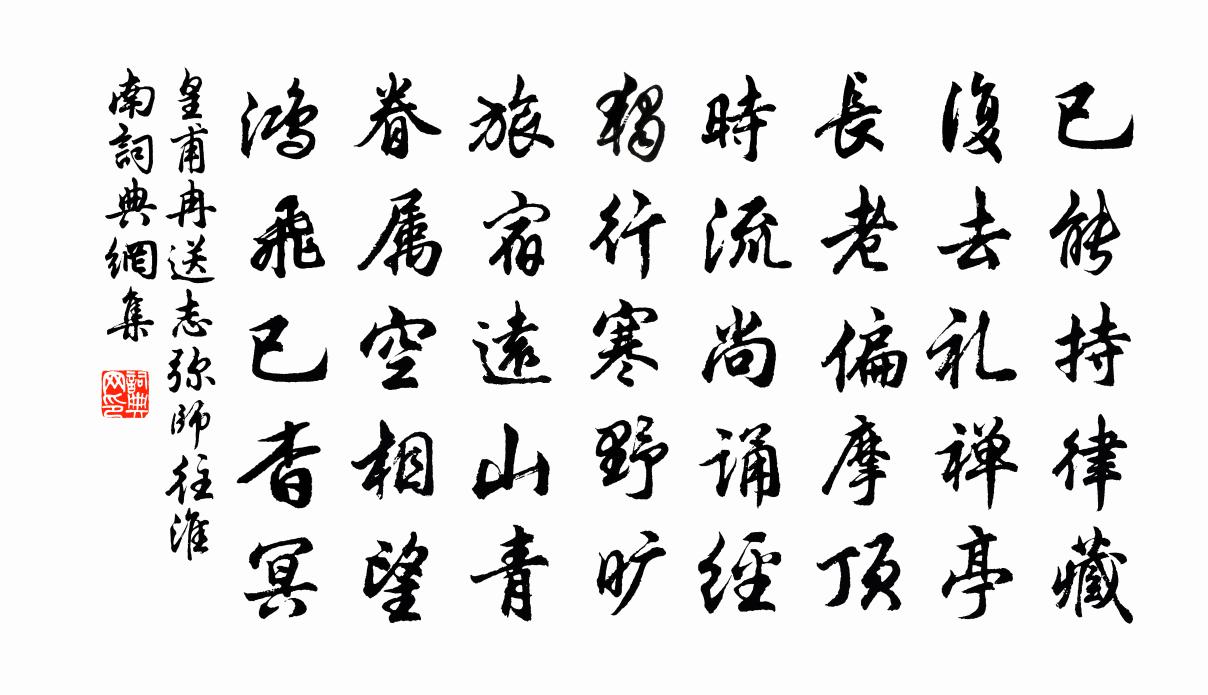 已能持律藏
復去礼禅亭
長老偏摩頂
時流尚诵經
独行寒野旷
旅宿遠山青
眷属空相望
鸿飛已杳冥
皇甫冉送志弥師往淮
南詞典網集
詞典
网印